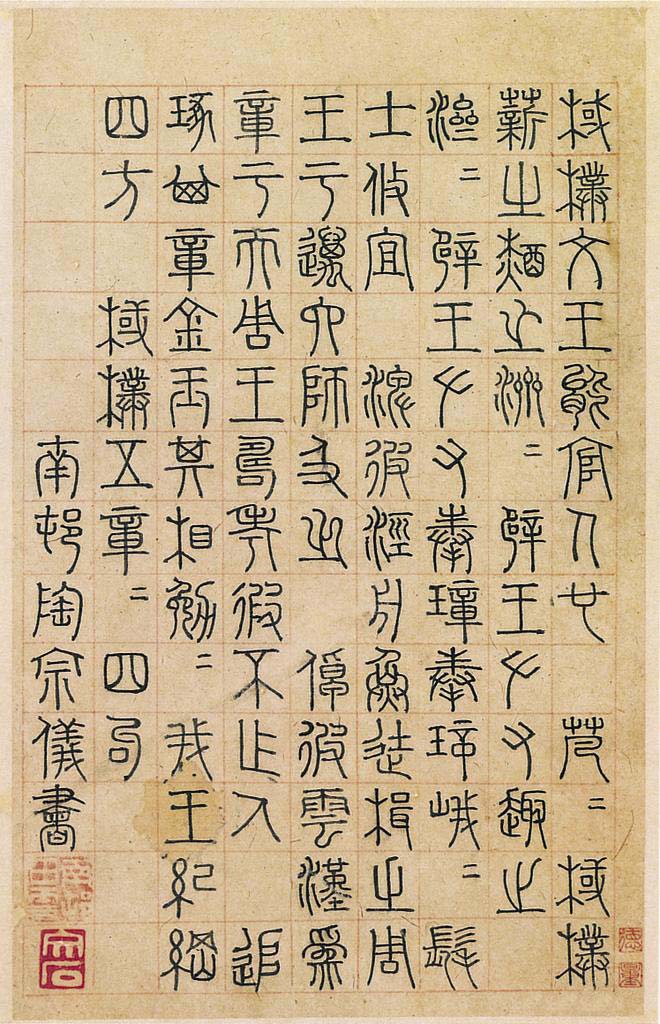 棫樸文王能官人也 芃〻棫樸
薪之槱之濟〻辟王左右趣之
濟〻辟王左右奉璋奉璋峨〻髦
士攸宜 淠彼涇舟烝徒楫之周
王于邁六師及之 倬彼雲漢為
章于天周王壽考遐不作人 追
琢其章金玉其相勉〻我王紀綱
四方 棫樸五章〻四句
南邨陶宗儀書